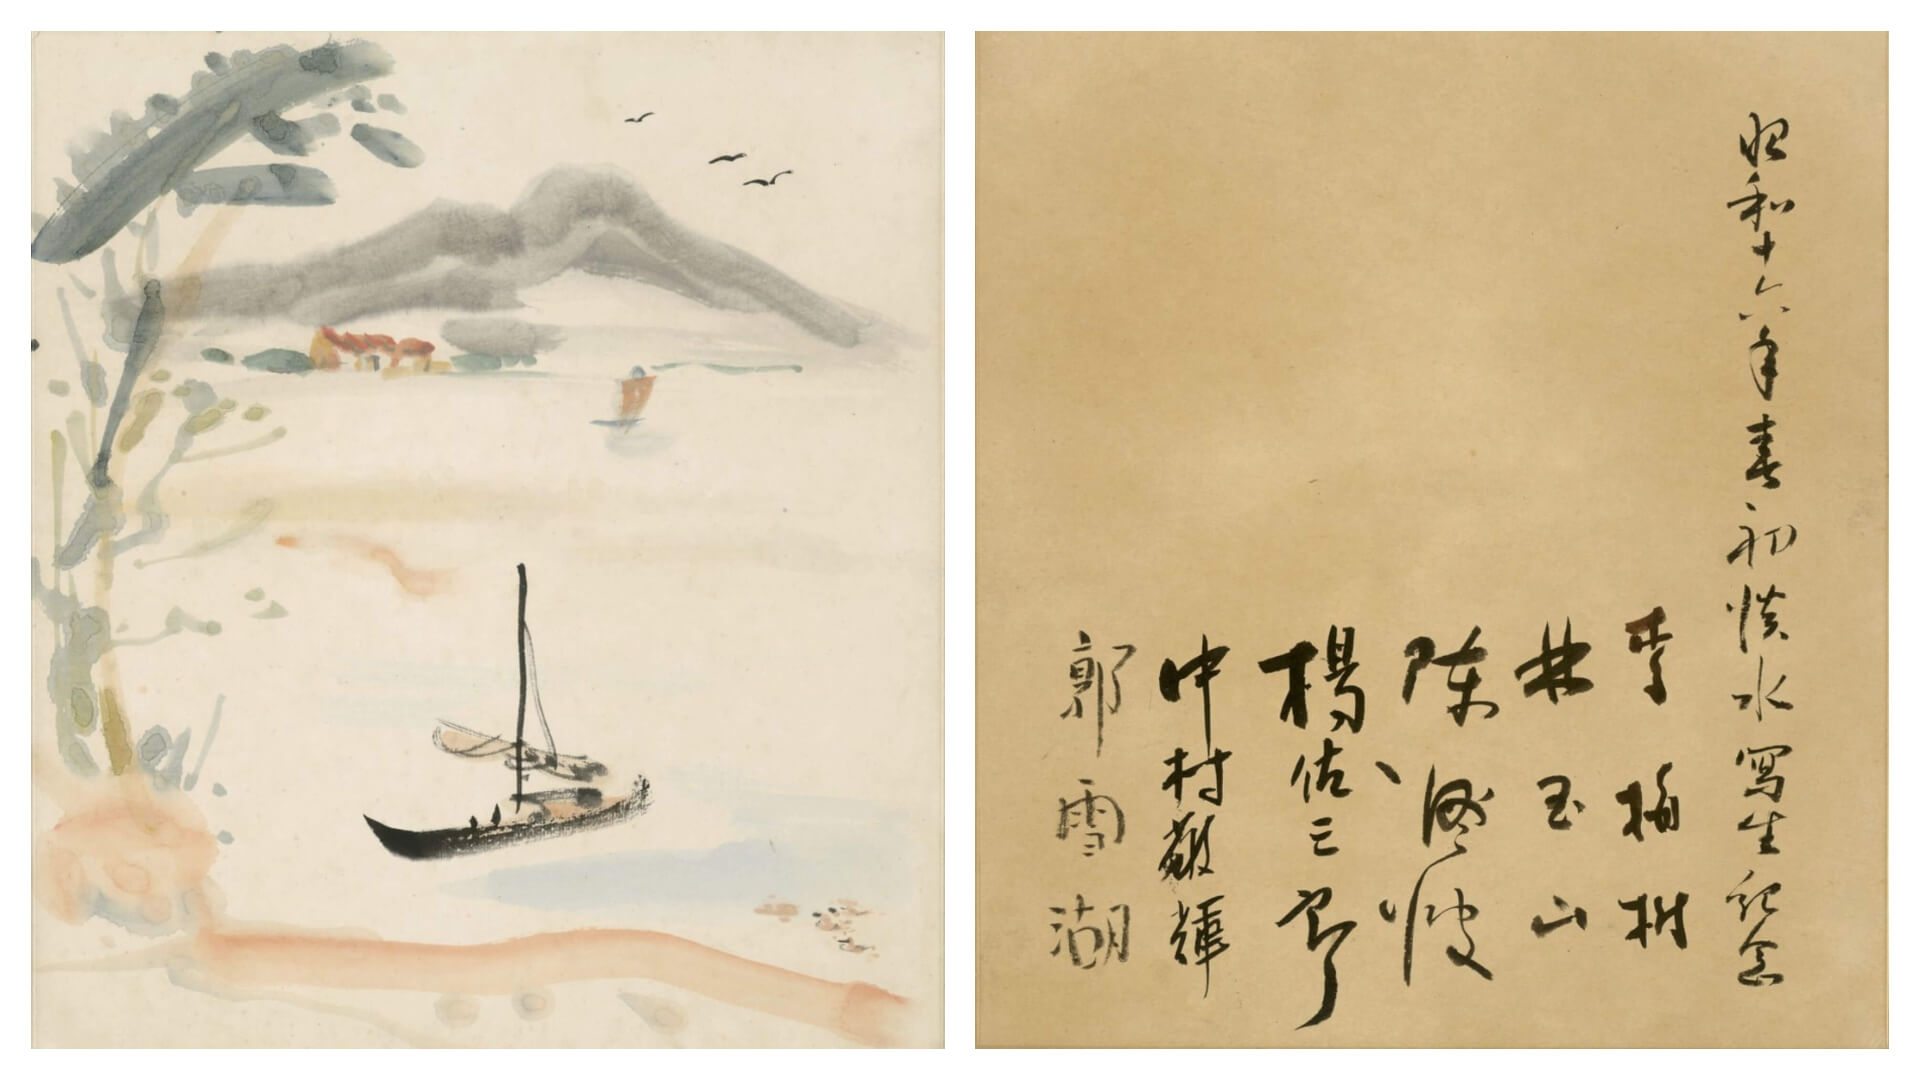 昭和十六年春初淡水寫生紀念
李梅樹
林玉山
陳澄波
楊佐三郎
中村敬輝
郭雪湖